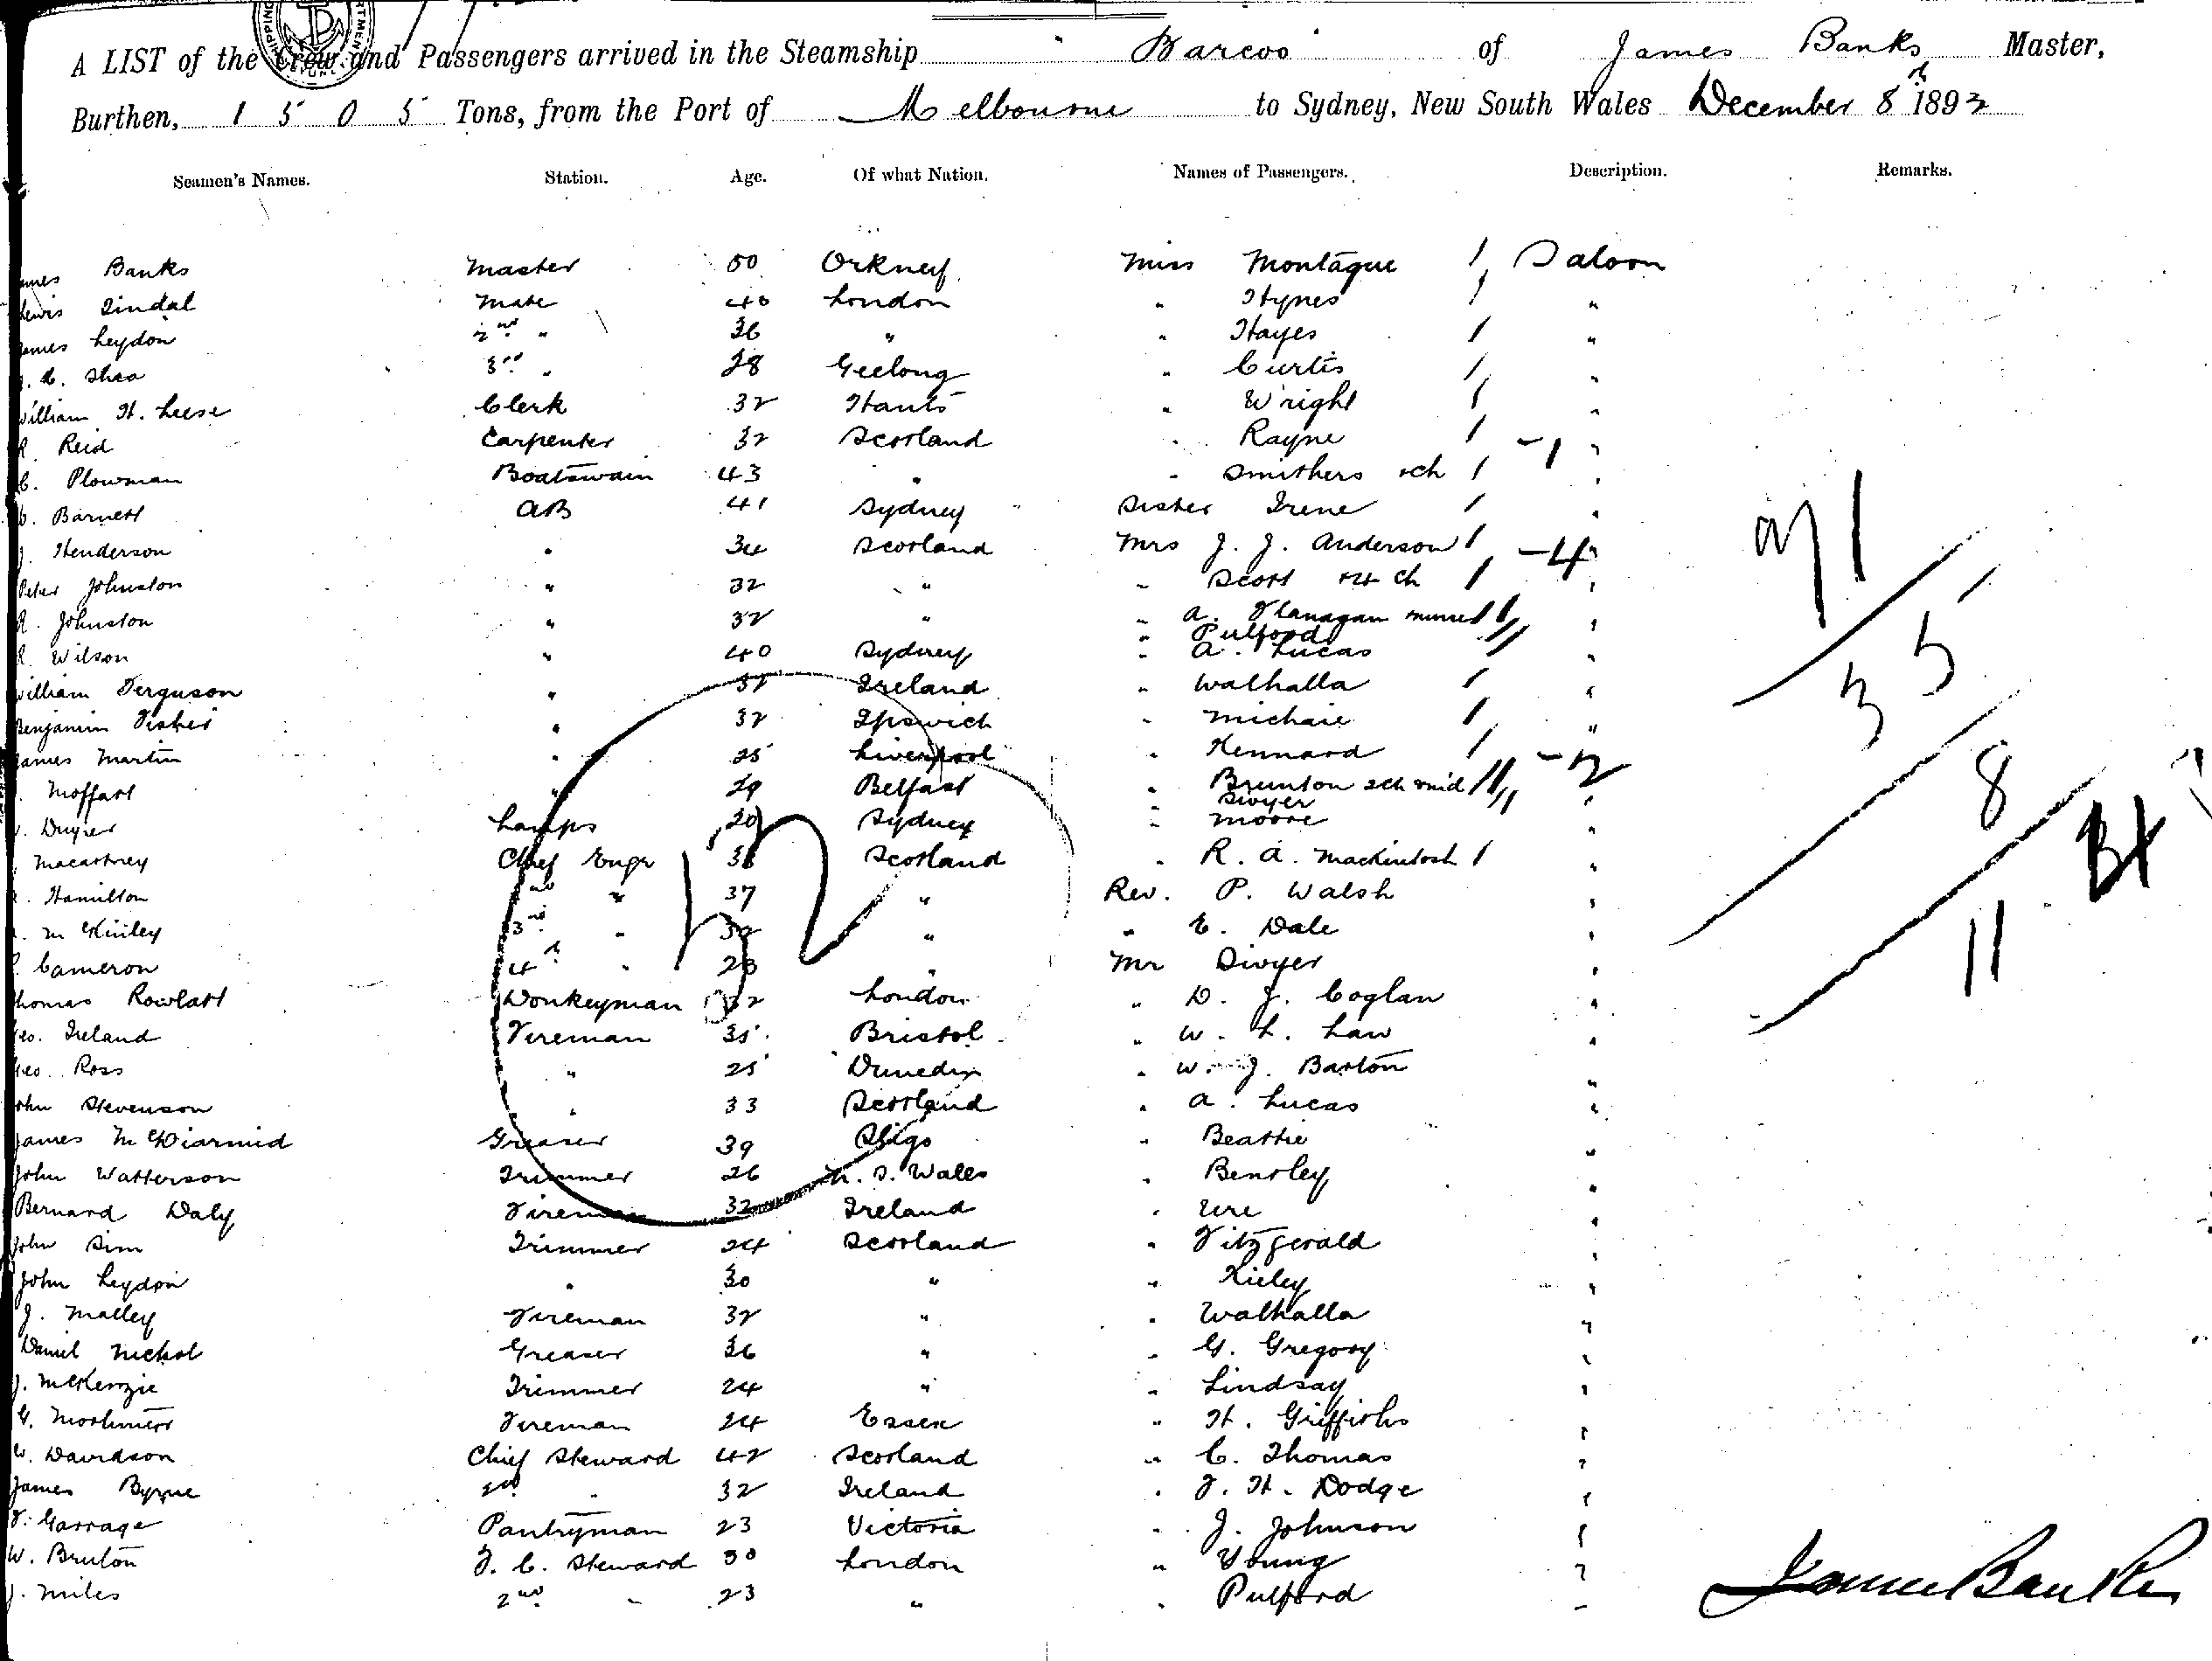 A LIST of the Crew and Passengers arrived in the Steamship "Barcoo" of James Banks Master,
Burthen, 1505 Tons, from the Port of Melbourne to Sydney, New South Wales December 8th 1893
Seamen's Names. Station. Age. Of what Nation. Names of Passengers. Description. Remarks.
Banks Master 50 Orkney Miss Montague 1 Saloon
Lewis Tindal Mate 40 London " Hynes 1 "
James Leydon 2nd " 36 " " Hayes 1 "
Shea 3rd " 28 Geelong " Curtis 1 "
William H. Leese Clerk 32 Hants " Wright 1 "
R. Reid Carpenter 32 Scotland " Rayne 1 - 1 "
C. Plowman Boatswain 43 " " Smithers & ch 1 "
Barnett AB 41 Sydney Sister Irene 1 "
J. Henderson " 34 Scotland Mrs J. J. Anderson 1 - 4 "
Peter Johnston " 32 " " Scott & 4 ch 1 "
R. Johnston " 32 " " A. Flanagan "
" Pulford
R. Wilson " 40 Sydney " A. Lucas "
William Ferguson " 32 Ireland " Walhalla 1 "
Benjamin Fisher " 32 Ipswich " Michaie 1 "
James Martin " 25 Liverpool " Kennard 1 - 2
Moffatt " 29 Belfast " Brunton 2 ch "
" Dwyer
Dwyer Lamps 20 Sydney " Moore "
Macartney Chief Engr 38 Scotland " R. A. Mackintosh 1 "
Hamilton 2nd " 37 " Rev. P. Walsh "
McKinley 3rd " 32 " " E. Dale "
Cameron 4th " 28 " Mr Dwyer "
Thomas Rowlatt Donkeyman 32 London " D. J. Coglan "
Geo. Ireland Fireman 35 Bristol " W. L. Law "
Geo. Ross " 25 Dunedin " W. J. Barton "
John Stevenson " 33 Scotland " A. Lucas "
James McDiarmid Greaser 39 Sligo " Beattie "
John Watterson Trimmer 26 N. S. Wales " Bentley "
Bernard Daly Fireman 32 Ireland " Ure "
John Sim Trimmer 24 Scotland " Fitzgerald "
John Leydon " 30 " " Kieley "
J. Malley Fireman 32 " " Walhalla "
Daniel Nickol Greaser 36 " " G. Gregory "
J. McKenzie Trimmer 24 " " Lindsay "
G. Mortimer Fireman 24 Essex " H. Griffiths "
W. Davidson Chief Steward 42 Scotland " C. Thomas "
James Byrne 2nd " 32 Ireland " F. H. Dodge "
F. Garrage Pantryman 23 Victoria " J. Johnson "
W. Bruton F. C. Steward 30 London " Young "
J. Miles 2nd " 23 " " Pulford "
35
8
11
James Banks